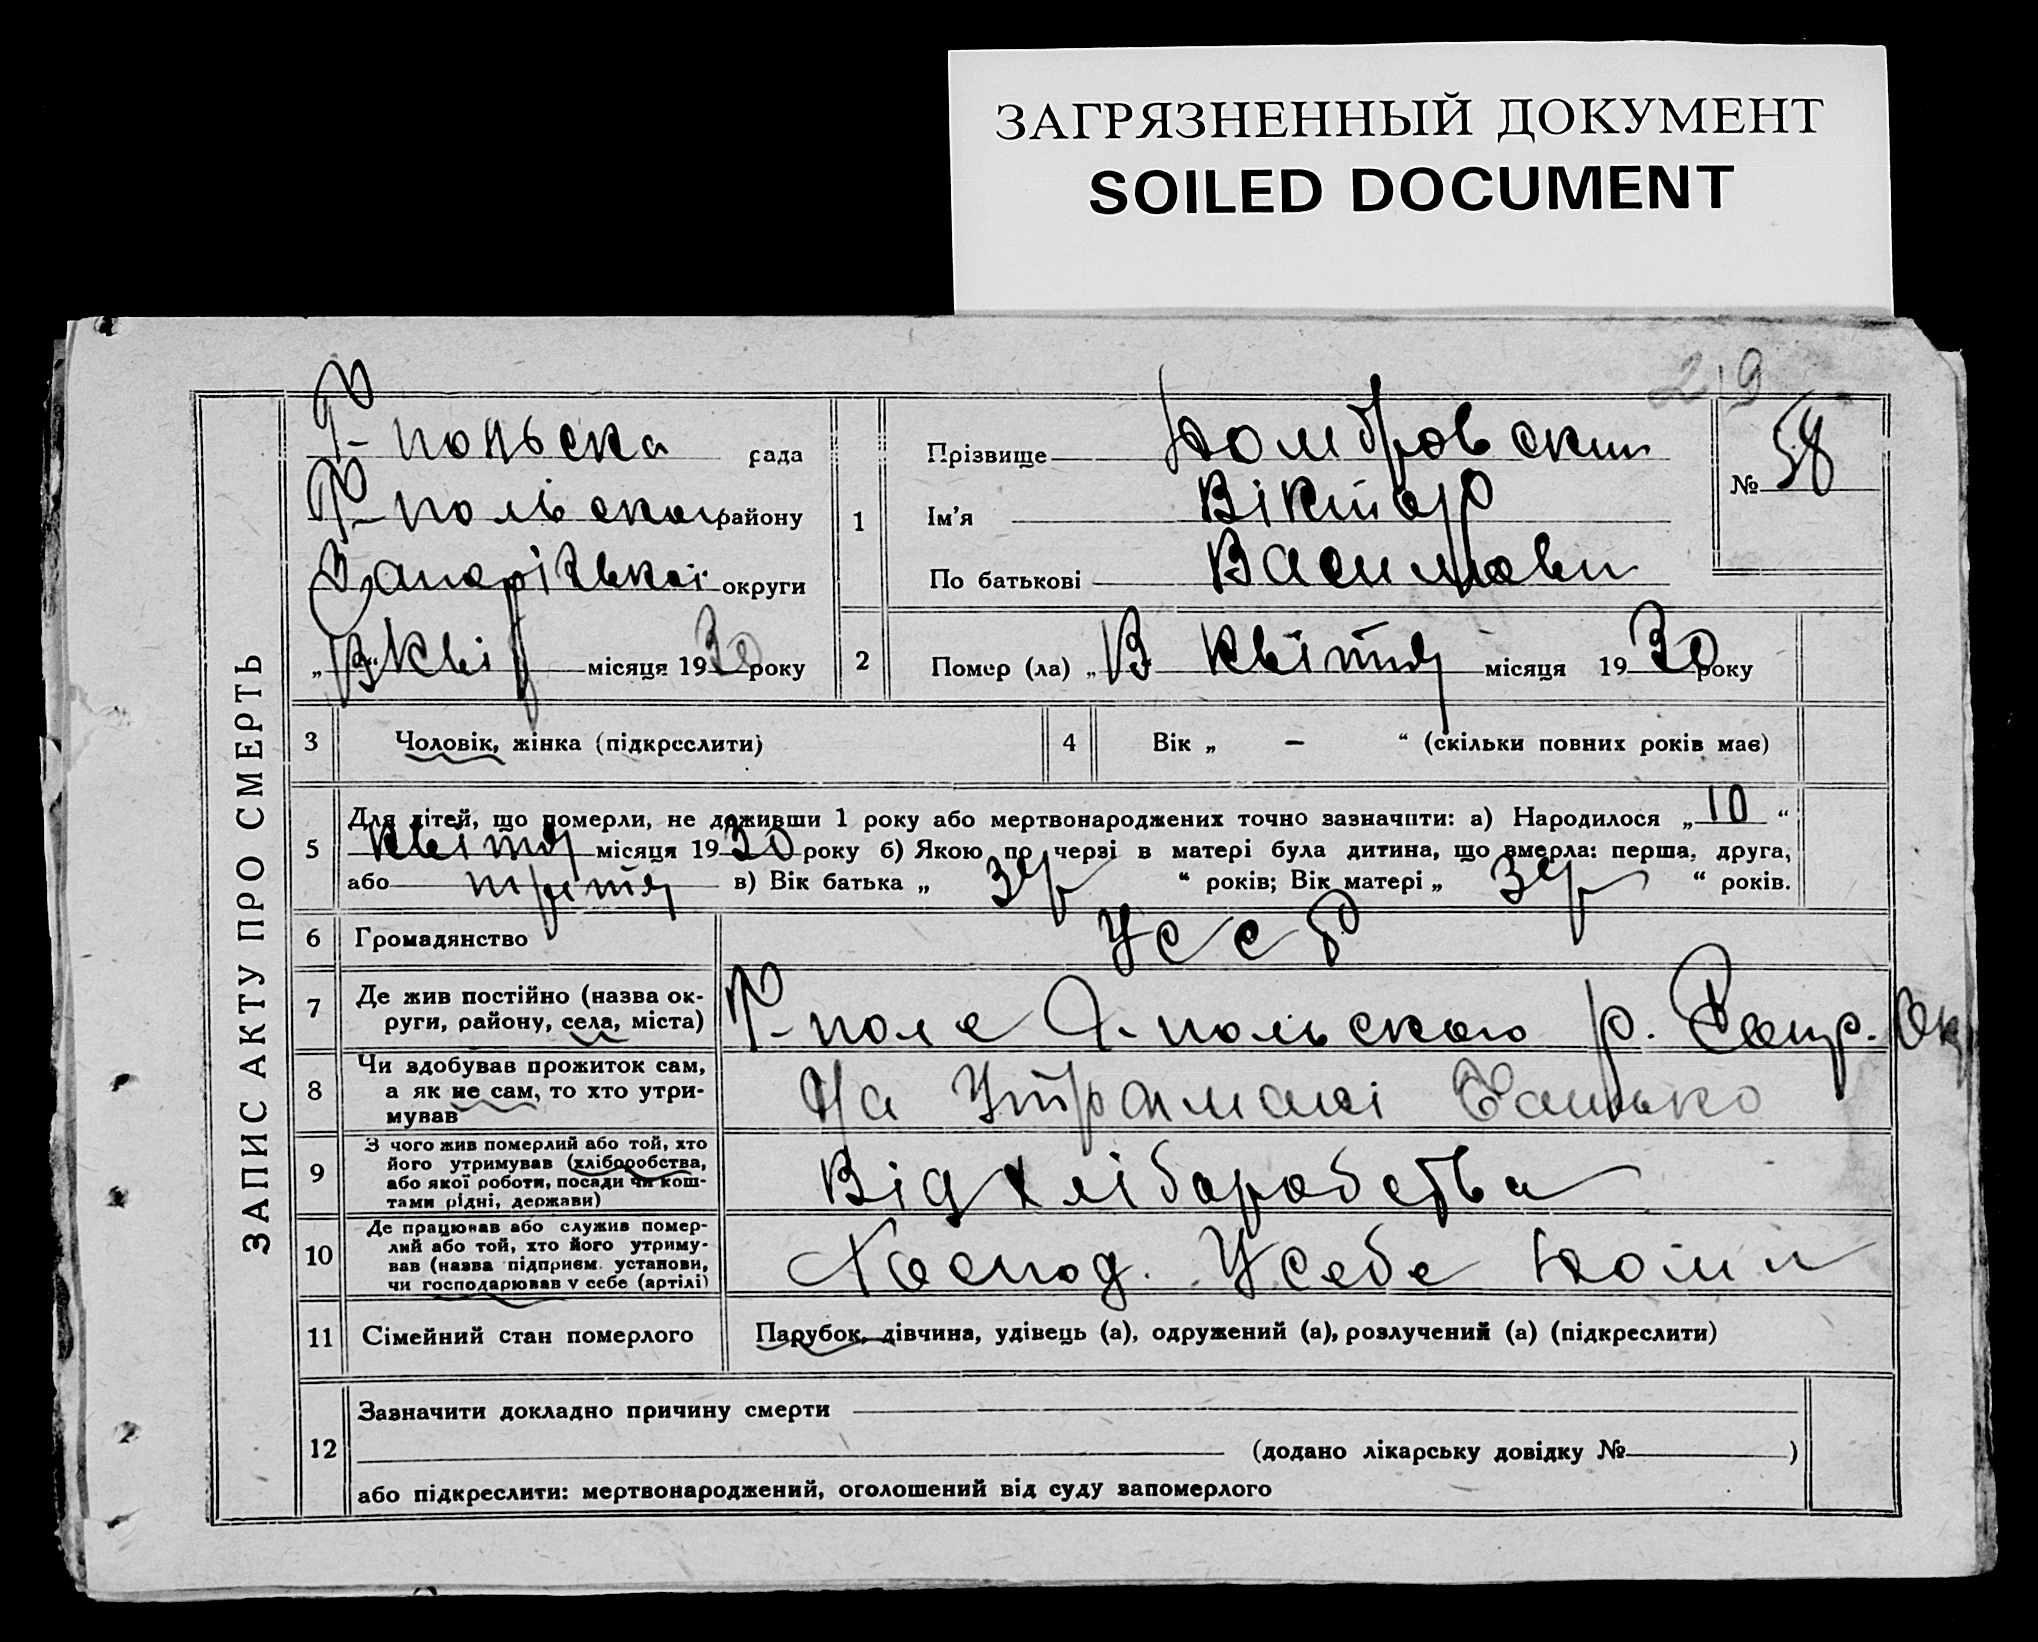 ЗАГРЯЗНЕННЫЙ ДОКУМЕНТ
SOILED DOCUMENT
219
ЗАПИС АКТУ ПРО СМЕРТЬ
Г-польска рада
Г-польского району
Запорізької округи
місяця 1930 року
1
Прізвище Домбровский
Ім'я Віктор
По батькові
№ 58
2
Помер (ла) „ квітня місяця 1930 року
3
Чоловік, жінка (підкреслити)
4
Вік „ – “ (скільки повних років має)
5
Для дітей, що померли, не доживши 1 року або мертвонароджених точно зазначити: а) Народилося „10“
квітня місяця 1930 року б) Якою по черзі в матері була дитина, що вмерла: перша, друга,
або третя в) Вік батька „ “ років; Вік матері „ “ років.
6
Громадянство УССР
7
Де жив постійно (назва ок-
руги, району, села, міста)
Г-поле Г-польского р. Запр. Ок
8
Чи здобував прожиток сам,
а як не сам, то хто утри-
мував
На Утриманні Батько
9
З чого жив померлий або той, хто
його утримував (хліборобства,
або якої роботи, посади чи кош-
тами рідні, держави)
Від хліборобства
10
Де працював або служив помер-
лий або той, хто його утриму-
вав (назва підприєм. установи,
чи господарював у себе (артілі)
Господ. У себе дома
11
Сімейний стан померлого
Парубок, дівчина, удівець (а), одружений (а), розлучений (а) (підкреслити)
12
Зазначити докладно причину смерти
(додано лікарську довідку № )
або підкреслити: мертвонароджений, оголошений від суду запомерлого